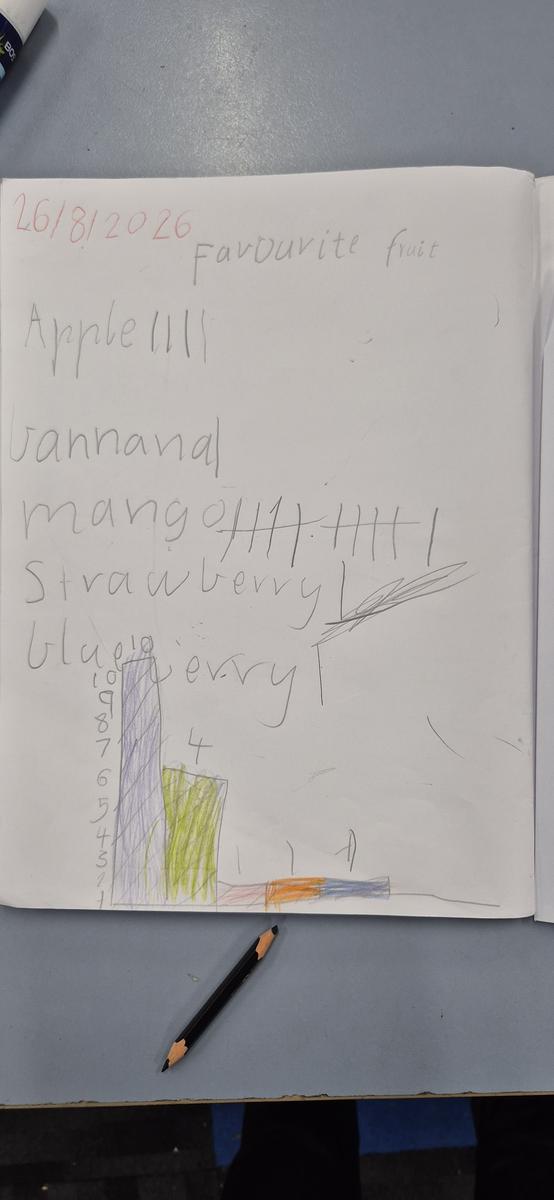 26/8/2026
Favourite fruit
Apple ||||
bannana|
mango |||| |||| |
Strawberry |
blueberry |
10
10
9
8
7
4
6
5
4
3
2
1
1 1 1